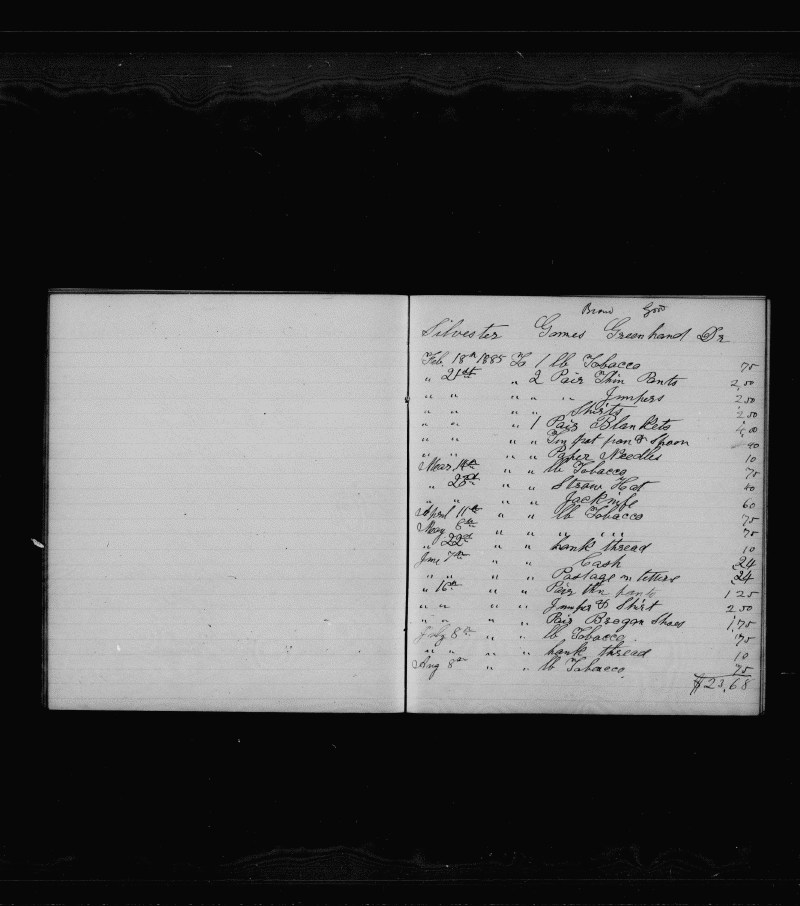 Brava Good
Silvester Gomes Greenhand Dr
Feb. 18th 1885 To 1 lb Tobacco 75
" 21st " 2 Pair Thin Pants 2,50
" " " " " Jumpers 2,50
" " " " Shirts 2,50
" " " 1 Pair Blankets 4,00
" " " " Tin pot pan & Spoon 90
" " " " Paper Needles 10
Mar 14th " " lb Tobacco 75
" 23rd " " Straw Hat 40
" " " " Jacknife 60
April 11th " " lb Tobacco 75
May 6th " " " " 75
" 22d " " hank thread 10
June 7th " " Cash 24
" " " " Postage on letters 24
" 16th " " Pair thin pants 1 25
" " " " Jumper & Shirt 2 50
" " " " Pair Brogan Shoes 1,75
July 8th " " lb Tobacco 75
" " " " hank thread 10
Aug 8th " " lb Tobacco 75
$23,68